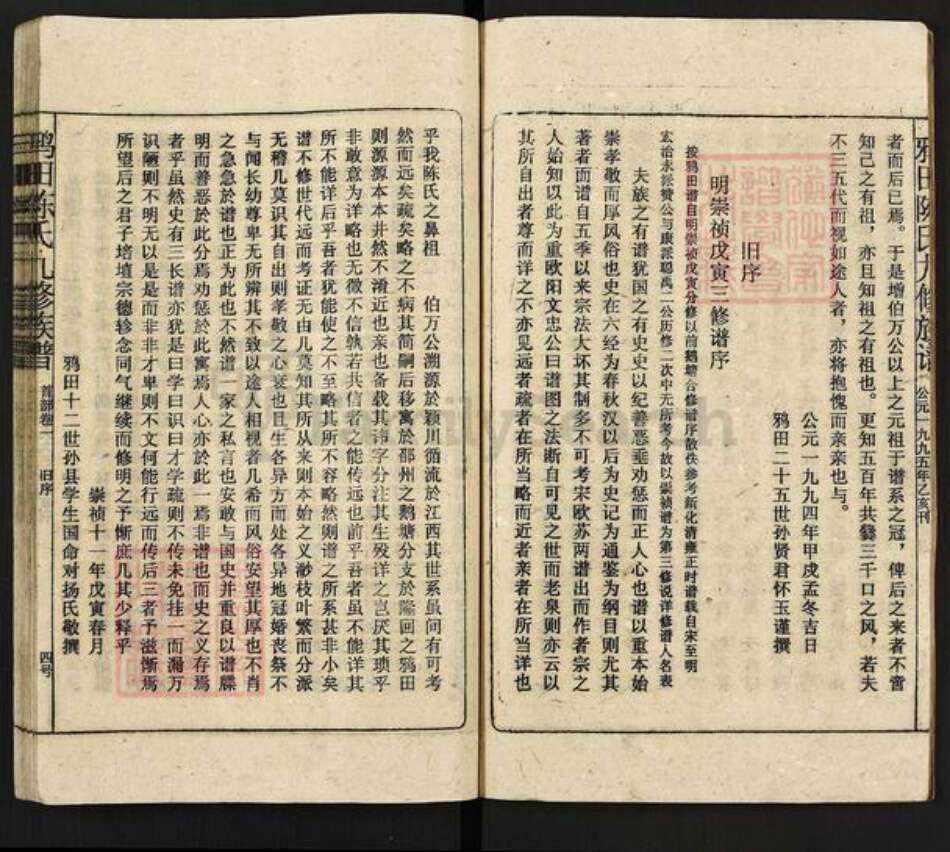 鸦田陈氏九修族谱
公元一九九五年乙亥刊
者而后已焉。于是增伯万公以上之元祖于谱系之冠，俾后之来者不啻
知己之有祖，亦且知祖之有祖也。更知五百年共爨三千口之风，若夫
不三五代而视如途人者，亦将抱愧而亲亲也与。
公元一九九四年甲戌孟冬吉日
鸦田二十五世孙贤君怀玉谨撰
旧序
明崇祯戊寅三修谱序
按鸦田谱自明崇祯戊寅分修以前鹅鸦合修谱序散佚参考新化清雍正时谱载自宋至明
宏治永派赞公与康派聪禹二公历修二次中无所考今故以崇祯谱为第三修说详修谱人名表
夫族之有谱犹国之有史史以纪善恶垂劝惩而正人心也谱以重本始
崇孝敬而厚风俗也史在六经为春秋汉以后为史记为通鉴为纲目则尤其
著者而谱自五季以来宗法大坏其制多不可考宋欧苏两谱出而作者宗之
人始知以此为重欧阳文忠公曰谱图之法断自可见之世而老泉则亦云以
其所自出者尊而详之不亦见远者疏者在所当略而近者亲者在所当详也
乎我陈氏之鼻祖　伯万公溯源於颍川循流於江西其世系虽间有可考
然而远矣疏矣略之不病其简嗣后移寓於邵州之鹅塘分支於隆回之鸦田
则源源本本井然不淆近也亲也备载其讳字分注其生殁详之岂厌其琐乎
非敢意为详略也无微不信孰若共信者之能传远也前乎吾者虽不能详其
所不能详后乎吾者犹能使之不至略其所不容略然则谱之所系甚非小矣
谱不修世代远而考证无由几莫知其所从来则本始之义渺枝叶繁而分派
无稽几莫识其自出则孝敬之心衰也且生各异方而处各异地冠婚丧祭不
与闻长幼尊卑无所辨其不致以途人相视者几希而风俗安望其厚也不肖
之急急於谱也正为此也不然谱一家之私言也安敢与国史并重良以谱牒
明而善恶於此分焉劝惩於此寓焉人心亦於此一焉非谱也而史之义存焉
者乎虽然史有三长谱亦犹是曰学曰识曰才学疏则不传未免挂一而漏万
识陋则不明无以是是而非非才卑则不文何能行远而传后三者予滋惭焉
所望后之君子培壇宗德轸念同气继续而修明之予惭庶几其少释乎
崇祯十一年戊寅春月
鸦田十二世孙县学生国命对扬氏敬撰
鸦田陈氏九修族谱
首部卷一
旧序
四号